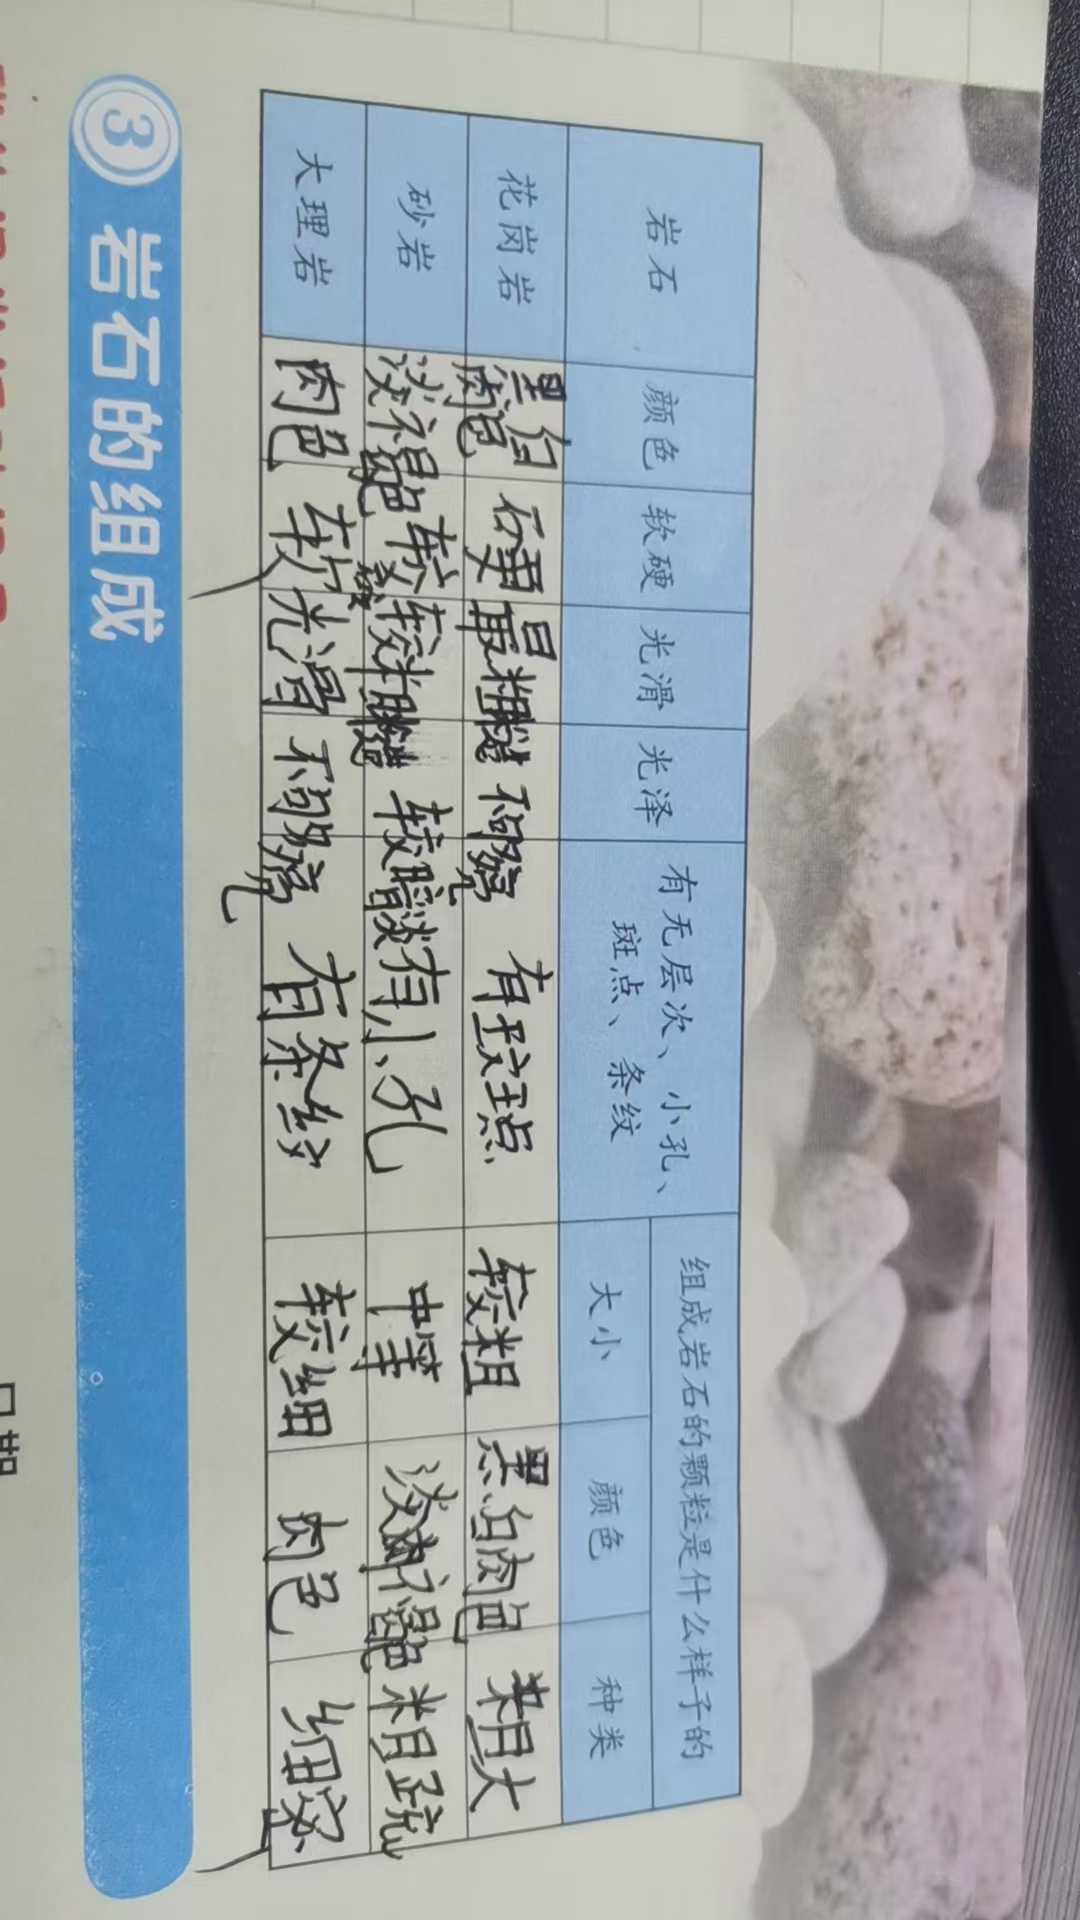 岩石 颜色 软硬 光滑 光泽 有无层次、小孔、斑点、条纹 组成岩石的颗粒是什么样子的
大小 颜色 种类
花岗岩 黑白肉色 硬 最粗糙 不够亮 有斑点 较粗 黑白肉色 粗大
砂岩 淡褐色 较 较粗糙 较暗淡 有小孔 中等 淡褐色 粗疏
大理岩 肉色 较 光滑 不够亮 有条纹 较细 肉色 细密
3 岩石的组成
日期